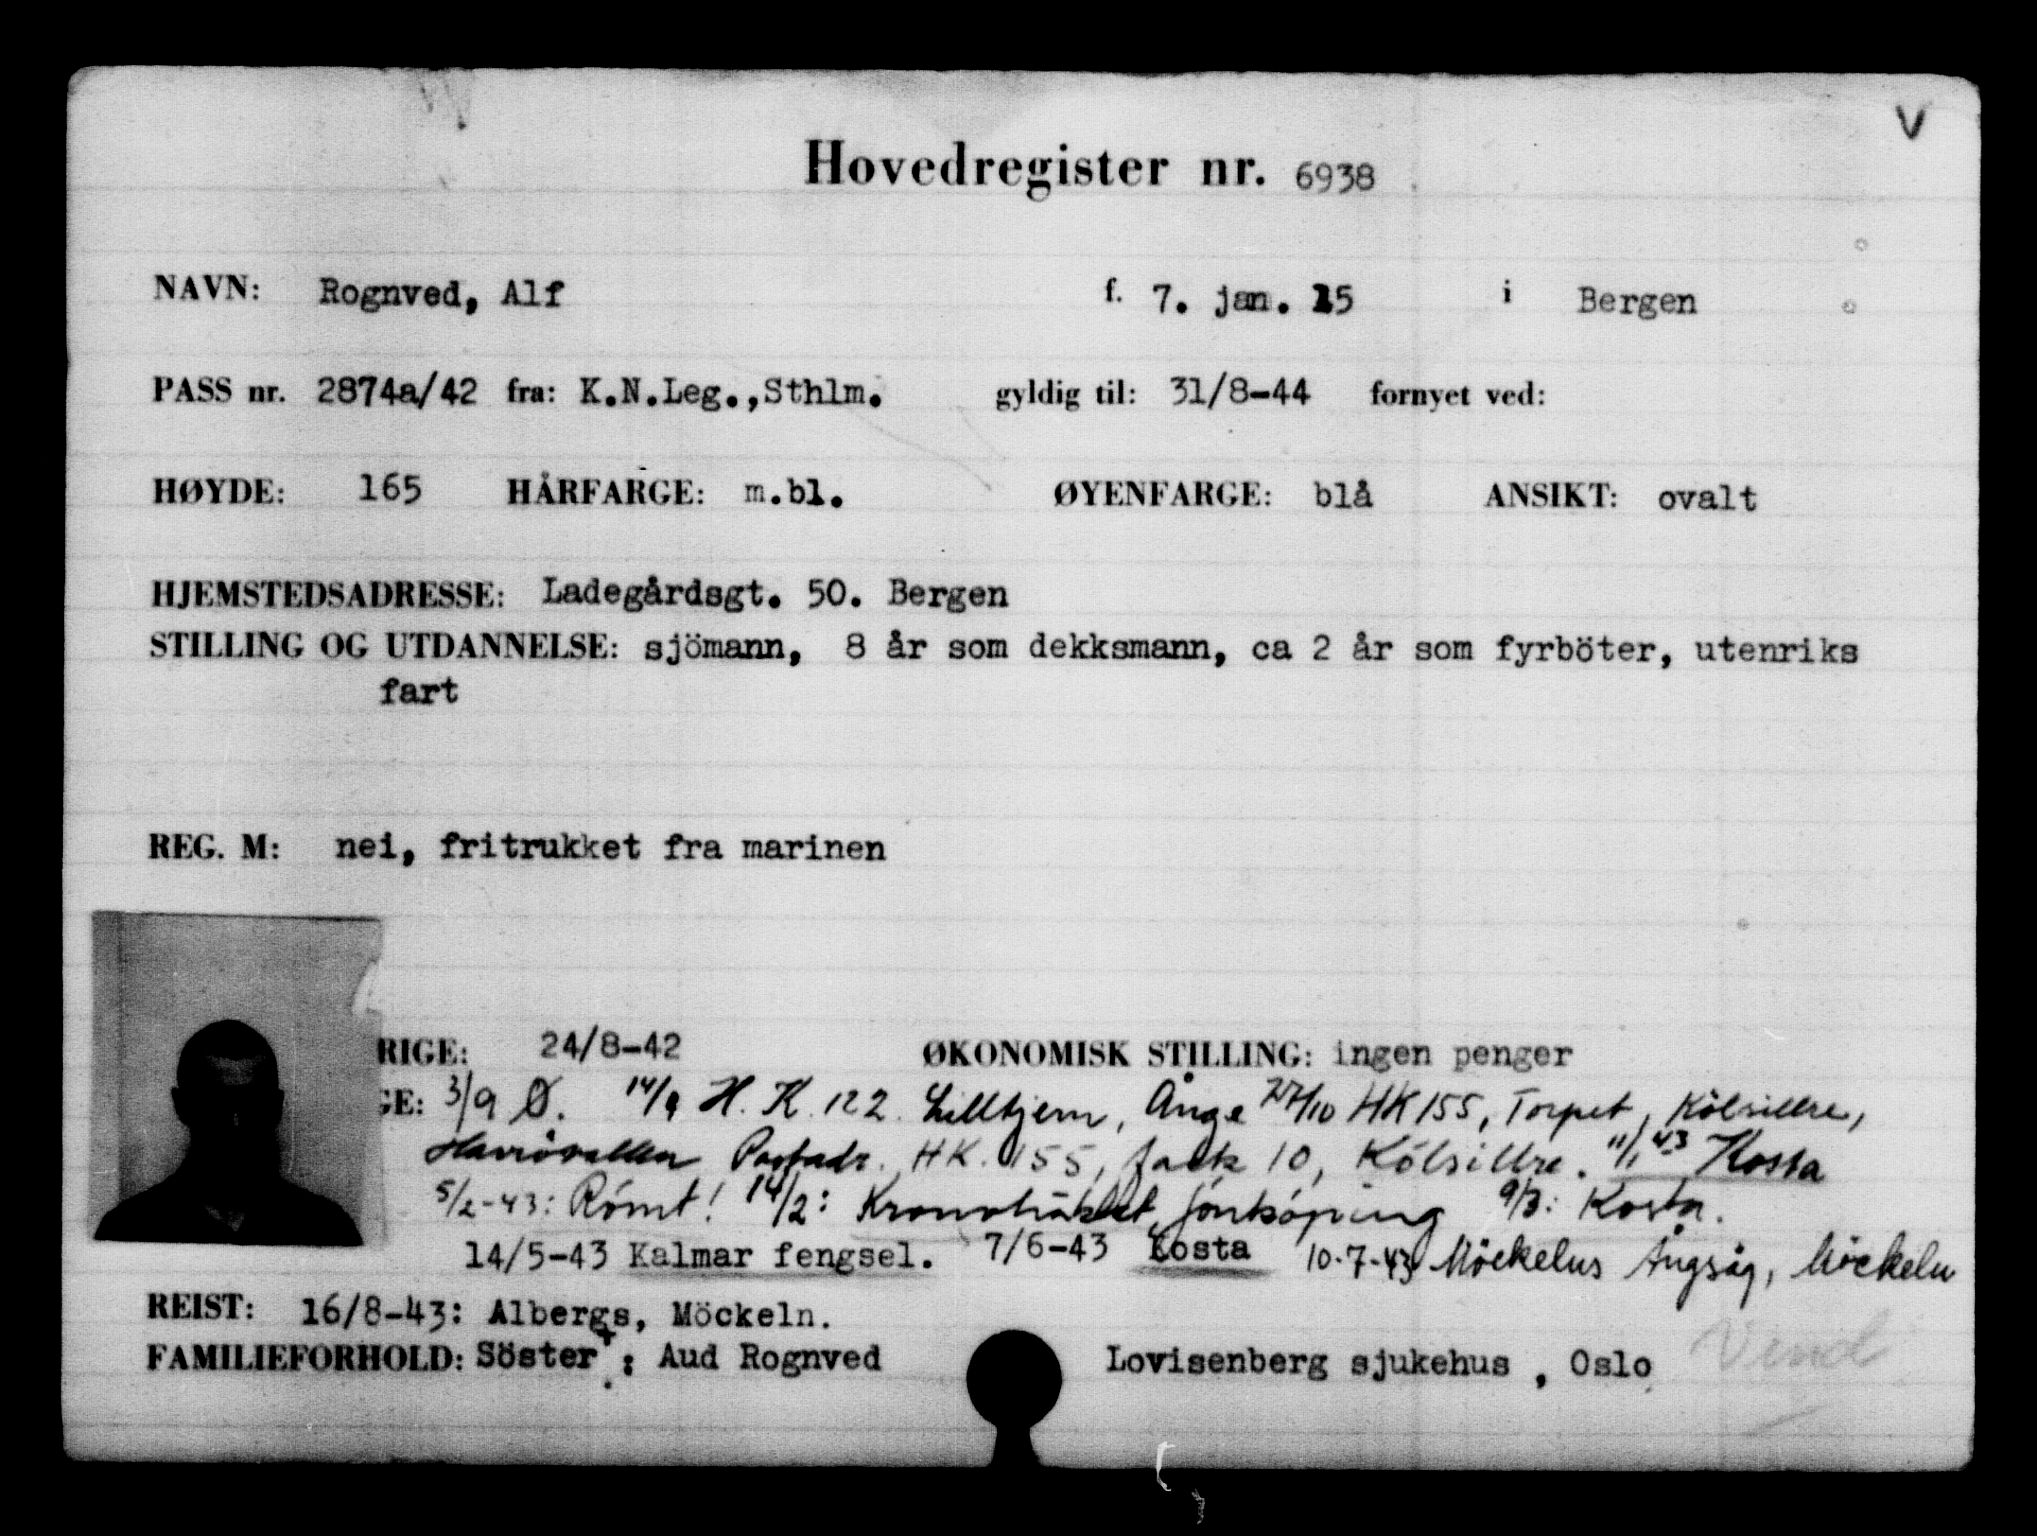 V
Hovedregister nr. 6938
NAVN: Rognved, Alf f. 7. jan. 15 i Bergen
PASS nr. 2874a/42 fra: K.N.Leg.,Sthlm. gyldig til: 31/8-44 fornyet ved:
HØYDE: 165 HÅRFARGE: m.bl. ØYENFARGE: blå ANSIKT: ovalt
HJEMSTEDSADRESSE: Ladegårdsgt. 50. Bergen
STILLING OG UTDANNELSE: sjömann, 8 år som dekksmann, ca 2 år som fyrböter, utenriks
fart
REG. M: nei, fritrukket fra marinen
RIGE: 24/8-42 ØKONOMISK STILLING: ingen penger
GE: 3/9 Ø. 14/9 H.K. 122 Lillbjern, Ånge 27/10 HK 155, Torpet, Kölsillre,
Postadr. HK. 155, fack 10, Kölsillre. 11/1 43 Kosta
5/2-43: Römt! 14/2: Kronohäktet, Jönköping 9/3: Kosta.
14/5-43 Kalmar fengsel. 7/6-43 Kosta 10-7-43 Möckelns Ångsåg, Möckeln
REIST: 16/8-43: Albergs, Möckeln.
FAMILIEFORHOLD: Söster+: Aud Rognved Lovisenberg sjukehus , Oslo
Vend